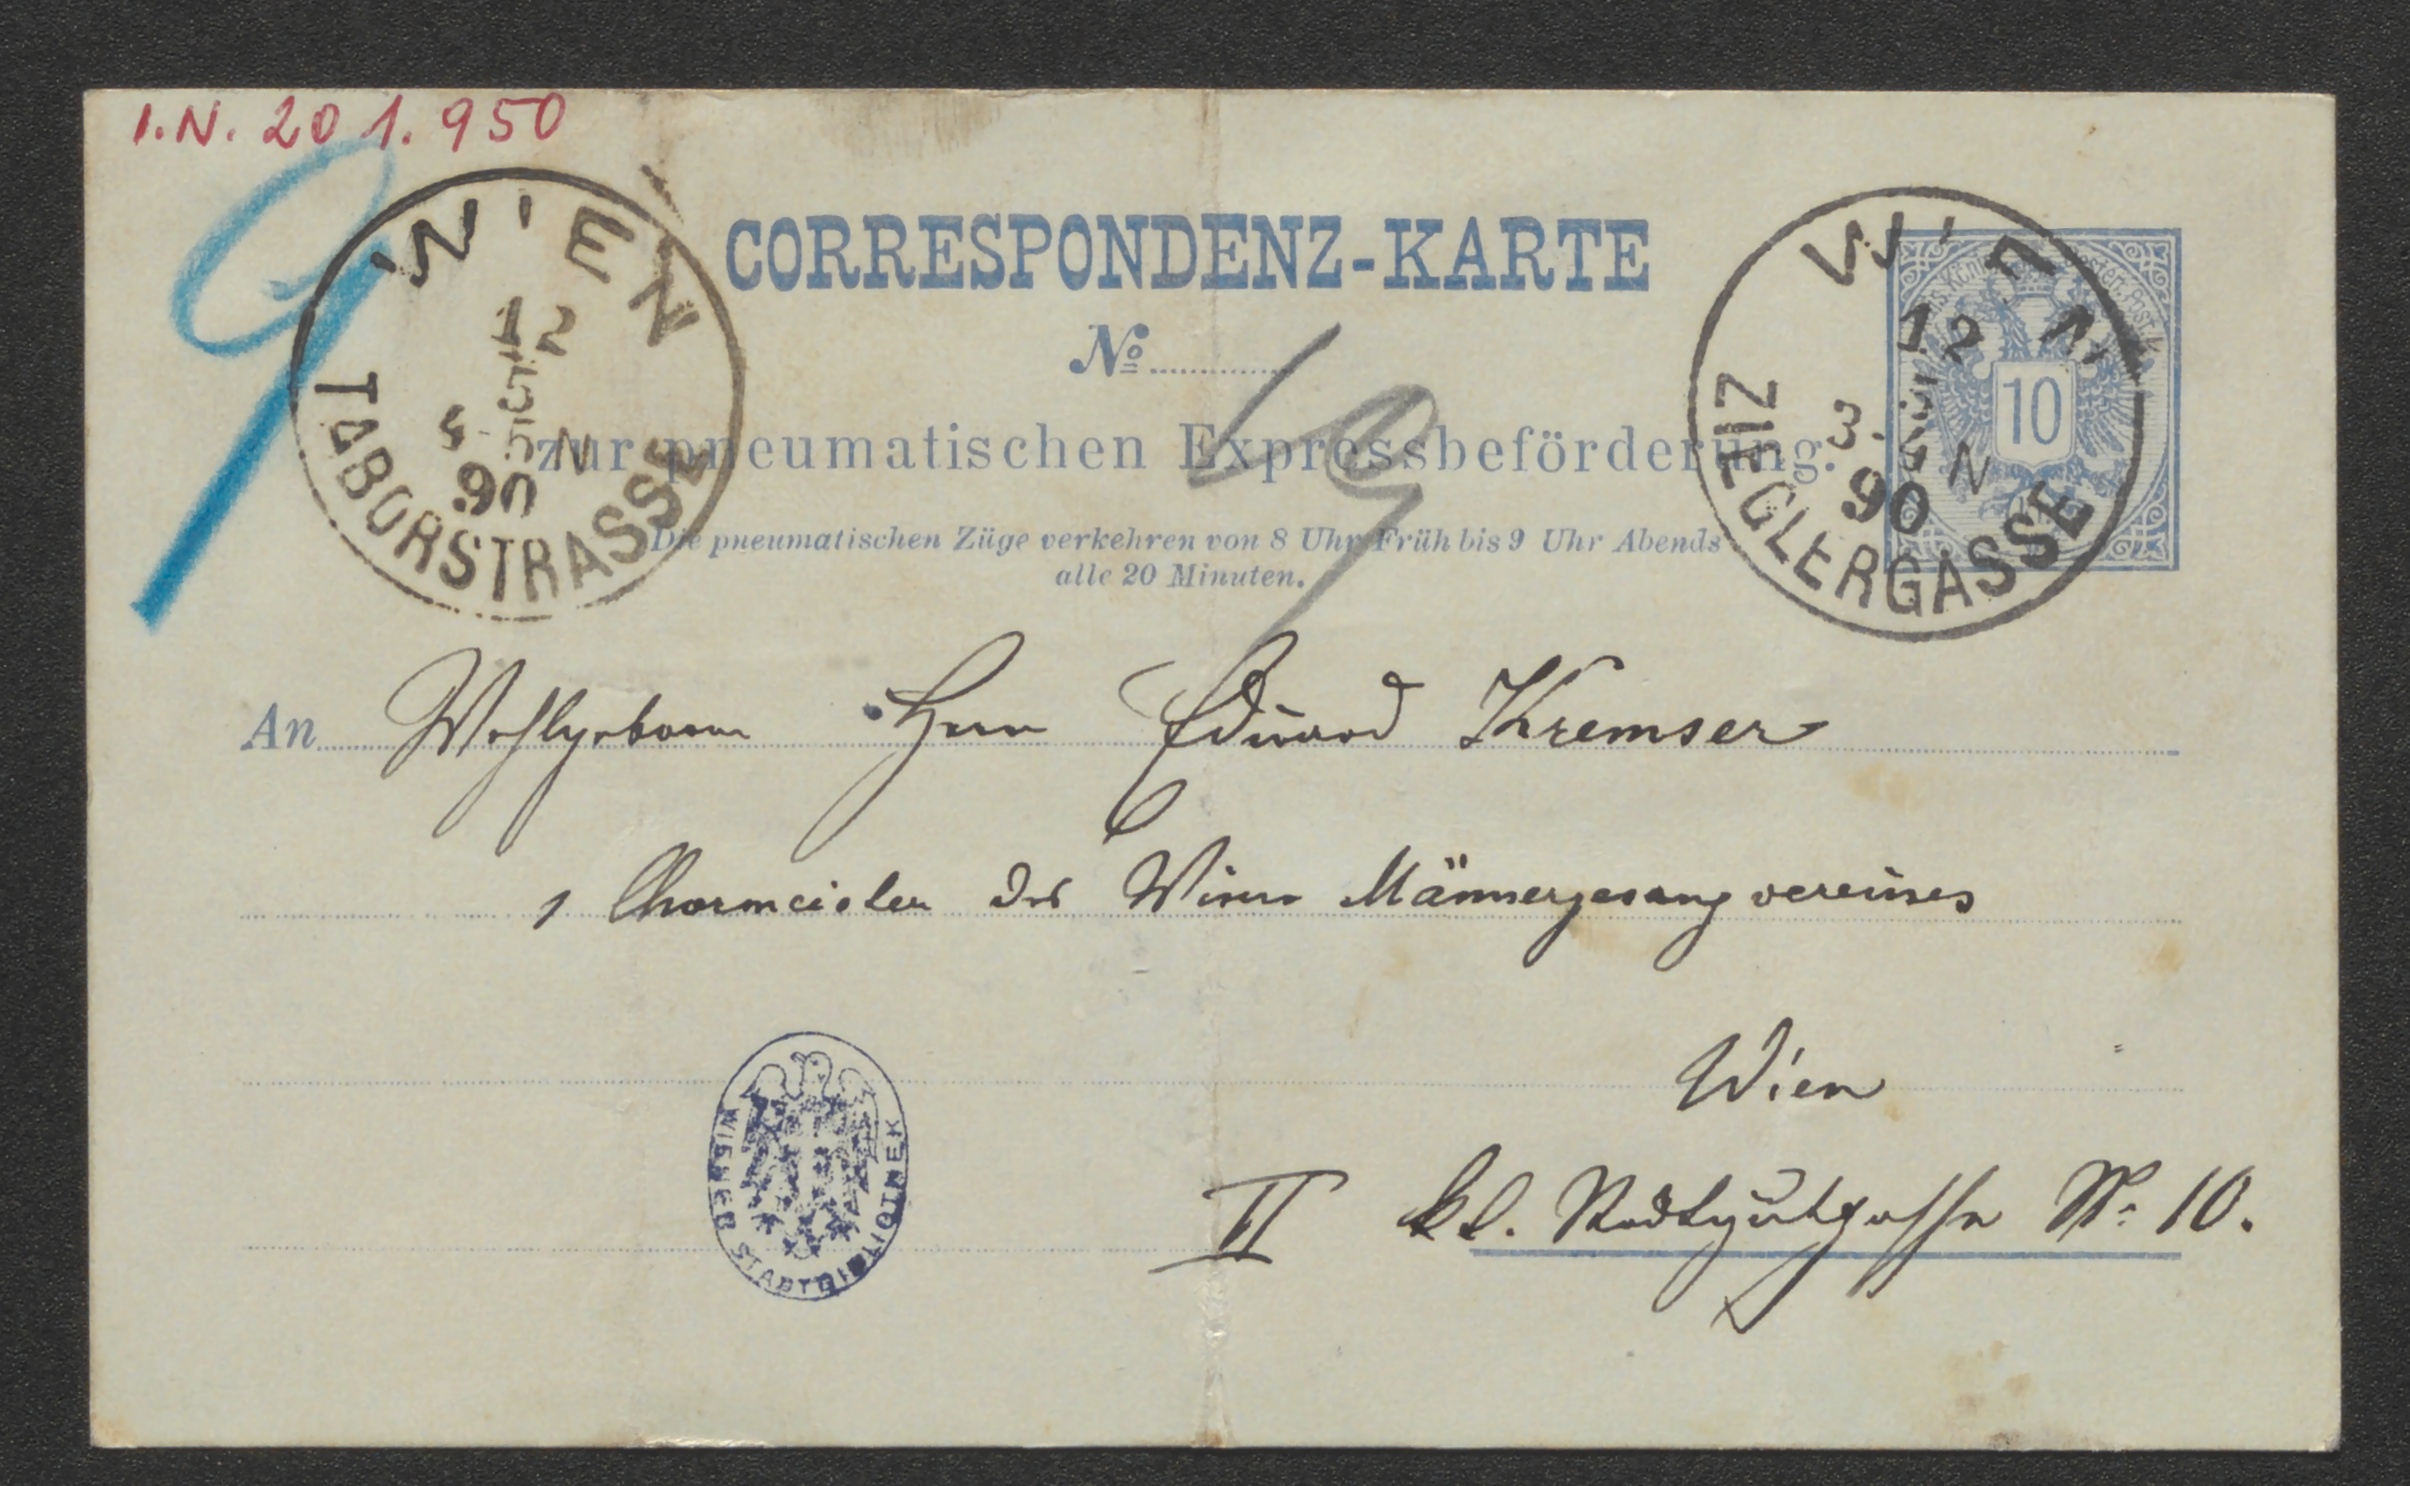 I.N. 201.950
9
WIEN
12
5
N
90
TABORSTRASSE
CORRESPONDENZ-KARTE
No
19
zur pneumatischen Expressbeförderung.
Die pneumatischen Züge verkehren von 8 Uhr Früh bis 9 Uhr Abends
alle 20 Minuten.
WIEN
12
3
N
90
ZIEGLERGASSE
10
An Wohlgeboren Herrn Eduard Kremser
1 Chormeister des Wiener Männergesangvereines
Wien
II kl. Stadtgutgasse No 10.
WIENER STADTBIBLIOTHEK